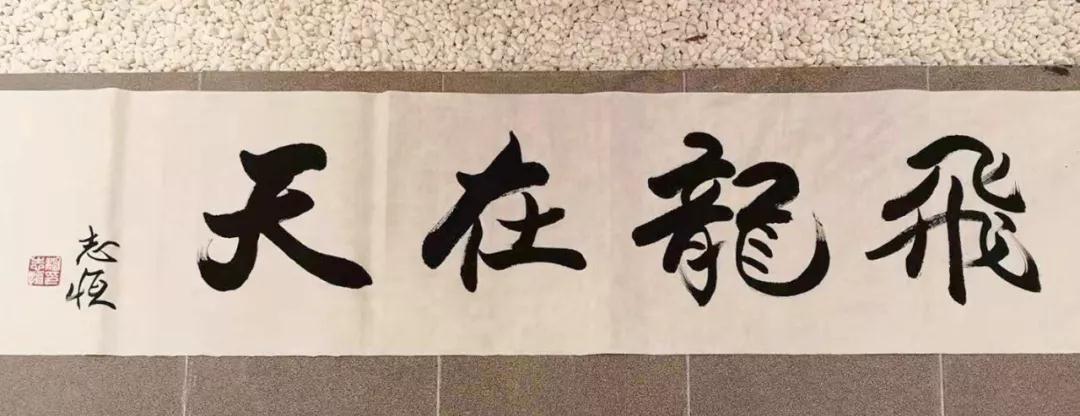 飛龍在天
志恒